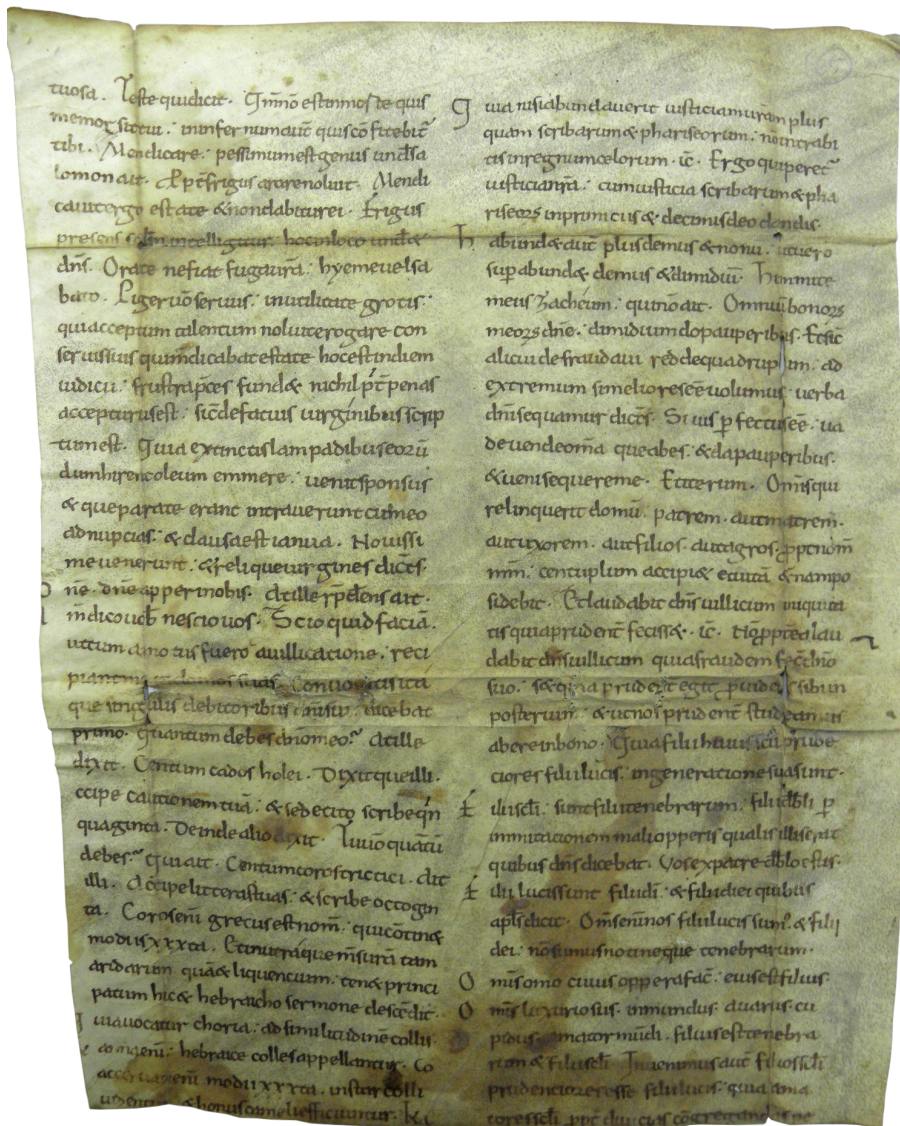 tuosa. Teste quidicit. Qm̄ nō estinmorte quis
memor sit tui. ininfernum aut̄ quis cōfitebit̄
tibi. Mendicare. pessimum est genus und̄ sa
lomon ait. Ppt̄ frigus arare noluit. Mendi
cavit ergo estate & non dabitur ei. Frigus
presens intelligitur hoc in loco und̄ &
dn̄s. Orate ne fiat fuga ur̄a. hyeme vel sa
bato. Piger uō servus. inutilitate
qui acceptum talentum noluit erogare con
servis suis quin dicabat estate hoc est in diem
iudicii. frustra p̄ces fund& nichil p̄t̄ penas
accepturus est. sic de fatuis virginibus scrip
tum est. Quia extinctis lampadibus eorū
dum hirent oleum emmere. venit sponsus
& que parate erant intraverunt cum eo
ad nupcias. & clausa est ianua. Novissi
me venerunt. & relique virgines dicēs.
nē. dn̄e apperi nobis. At ille rp̄dens ait.
m̄ dico uob̄ nescio vos. Scio quid faciā.
ut cum amotus fuero a uillicatione. reci
piant suas. Convocatis ita
que singulis debitoribus dicebat
primo. Quantum debes dn̄o meo. At ille
dixit. Centum cados holei. Dixitque illi.
ccipe cautionem tuā. & sede cito scribe qn̄
quaginta. Deinde alio dixit. Tu uō quātū
debes. Qui ait. Centum coros tritici. Ait
illi. Accipe litteras tuas. & scribe octogin
ta. Corosem̄ grecus est nom̄. qui cōtin&
modius xxxta. Et in utraque m̄surā tam
aridarum quā & liquencium. ten& princi
patum hic & hebraicho sermone descēdit.
uia vocatur choria. ad similitudinē collis.
hebraice colles appellantur. Co
modii xxxta. instar colli
& honus cameli efficiuntur.
Q uia nisi abundaverit iusticia ur̄am plus
quam scribarum & phariseorum. nō intrabi
tis in regnum celorum. ic̄. Ergo qui peret̄
iusticia nr̄a. cum iusticia scribarum & pha
riseorꝝ in primicus & decimis deo dandis.
h abund& aut̄ plus demus & nonu. ut vero
sup abund& demus & dimidiū. hinmite
meus Zacheum. qui nō ait. Omniū bonorꝝ
meorꝝ dn̄e. dimidium do pauperibus. Et sic
alicui defraudavi reddequadruplum. ad
extremum si meliores eē volumus. verba
dn̄i sequamur dicēs. Si vis pfectus eē. ua
de vende om̄a que abes. & da pauperibus.
& veni sequere me. Et iterum. Om̄is qui
relinquerit domū. patrem. aut matrem.
aut uxorem. aut filios. aut agros. ppt nom̄
m̄m. centuplum accipi& et vitā &nam po
sidebit. Et laudabit dn̄s uillicum iniquita
tis quia prudent̄ feciss&. ic̄. Nō ppt̄ea lau
dabit dn̄s uillicum quia fraudem fec̄ dn̄o
suo. s& quia prudent̄ egit sibi in
posterum. & ut nos prudent̄
abere in bono. Quia filii huius scl̄i prude
ciores filii lucis. in generacione sua sunt.
F ilii scl̄i. sunt filii tenebrarum. filii dbl̄i p
immitacionem mali opperis qualis illi erat
quibus dn̄s dicebat. Vos ex patre dbl̄o estis.
F ilii lucis sunt filii dī. & filii diei quibus
apl̄s dicit. Om̄s enī nos filii lucis sum̄. & filii
dei. nō sumus noc neque tenebrarum.
O mīs omo cuius oppera fac̄. eius est filius.
O mīs luxuriosus. inmundus. avarus. cu
pidus. amator mūdi. filius est tenebra
rum & filius scl̄i. Invenimus aut̄ filios scl̄i
prudenciores esse filii lucis. quia ama
tores scl̄i ppt̄ divicias cōgregandas ne